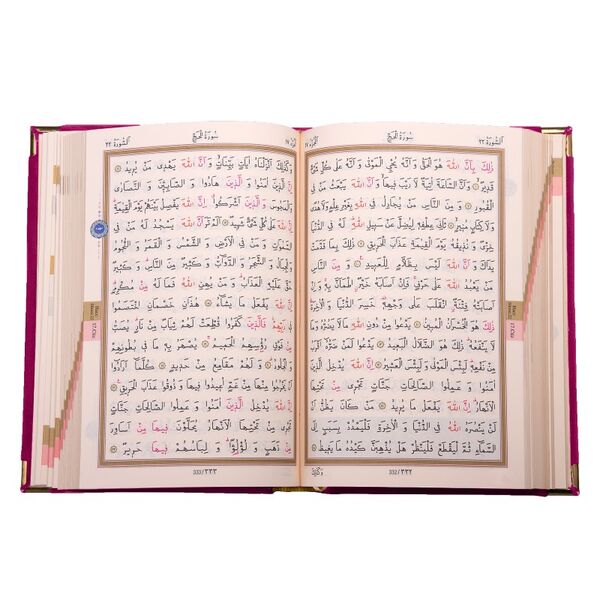 اَلسُّورَةُ ٢٢
سُورَةُ الْحَجِّ
اَلْجُزْءُ ١٧
ذٰلِكَ بِاَنَّ اللّٰهَ هُوَ الْحَقُّ وَاَنَّهُ يُحْيِ الْمَوْتٰى وَاَنَّهُ عَلٰى كُلِّ شَيْءٍ
قَدِيرٌ ۞ وَاَنَّ السَّاعَةَ اٰتِيَةٌ لَا رَيْبَ فِيهَا وَاَنَّ اللّٰهَ يَبْعَثُ مَنْ فِي
الْقُبُورِ ۞ وَمِنَ النَّاسِ مَنْ يُجَادِلُ فِي اللّٰهِ بِغَيْرِ عِلْمٍ وَلَا هُدًى
وَلَا كِتَابٍ مُنِيرٍ ۞ ثَانِيَ عِطْفِهِ لِيُضِلَّ عَنْ سَبِيلِ اللّٰهِ لَهُ فِي الدُّنْيَا
خِزْيٌ وَنُذِيقُهُ يَوْمَ الْقِيٰمَةِ عَذَابَ الْحَرِيقِ ۞ ذٰلِكَ بِمَا قَدَّمَتْ
يَدَاكَ وَاَنَّ اللّٰهَ لَيْسَ بِظَلَّامٍ لِلْعَبِيدِ ۞ وَمِنَ النَّاسِ
مَنْ يَعْبُدُ اللّٰهَ عَلٰى حَرْفٍ فَاِنْ اَصَابَهُ خَيْرٌ اطْمَاَنَّ بِهِ وَاِنْ
اَصَابَتْهُ فِتْنَةٌ انْقَلَبَ عَلٰى وَجْهِهِ خَسِرَ الدُّنْيَا وَالْاٰخِرَةَ
ذٰلِكَ هُوَ الْخُسْرَانُ الْمُبِينُ ۞ يَدْعُوا مِنْ دُونِ اللّٰهِ مَا لَا يَضُرُّهُ وَمَا
لَا يَنْفَعُهُ ذٰلِكَ هُوَ الضَّلَالُ الْبَعِيدُ ۞ يَدْعُوا لَمَنْ ضَرُّهُ اَقْرَبُ
مِنْ نَفْعِهِ لَبِئْسَ الْمَوْلٰى وَلَبِئْسَ الْعَشِيرُ ۞ اِنَّ اللّٰهَ يُدْخِلُ الَّذِينَ
اٰمَنُوا وَعَمِلُوا الصَّالِحَاتِ جَنَّاتٍ تَجْرِي مِنْ تَحْتِهَا
الْاَنْهَارُ اِنَّ اللّٰهَ يَفْعَلُ مَا يُرِيدُ ۞ مَنْ كَانَ يَظُنُّ اَنْ
لَنْ يَنْصُرَهُ اللّٰهُ فِي الدُّنْيَا وَالْاٰخِرَةِ فَلْيَمْدُدْ بِسَبَبٍ اِلَى
السَّمَاءِ ثُمَّ لْيَقْطَعْ فَلْيَنْظُرْ هَلْ يُذْهِبَنَّ كَيْدُهُ مَا يَغِيظُ
وَكَذٰلِكَ
332/٣٣٢
سُورَةُ الْحَجِّ
اَلسُّورَةُ ٢٢
وَكَذٰلِكَ اَنْزَلْنَاهُ اٰيَاتٍ بَيِّنَاتٍ وَاَنَّ اللّٰهَ يَهْدِي مَنْ يُرِيدُ ۞
اِنَّ الَّذِينَ اٰمَنُوا وَالَّذِينَ هَادُوا وَالصَّابِـِٔينَ وَالنَّصَارٰى
وَالْمَجُوسَ وَالَّذِينَ اَشْرَكُوا اِنَّ اللّٰهَ يَفْصِلُ بَيْنَهُمْ يَوْمَ الْقِيٰمَةِ
اِنَّ اللّٰهَ عَلٰى كُلِّ شَيْءٍ شَهِيدٌ ۞ اَلَمْ تَرَ اَنَّ اللّٰهَ يَسْجُدُ لَهُ مَنْ فِي
السَّمٰوَاتِ وَمَنْ فِي الْاَرْضِ وَالشَّمْسُ وَالْقَمَرُ وَالنُّجُومُ
وَالْجِبَالُ وَالشَّجَرُ وَالدَّوَابُّ وَكَثِيرٌ مِنَ النَّاسِ وَكَثِيرٌ
حَقَّ عَلَيْهِ الْعَذَابُ وَمَنْ يُهِنِ اللّٰهُ فَمَا لَهُ مِنْ مُكْرِمٍ
اِنَّ اللّٰهَ يَفْعَلُ مَا يَشَاءُ ۞ هٰذَانِ خَصْمَانِ اخْتَصَمُوا
فِي رَبِّهِمْ فَالَّذِينَ كَفَرُوا قُطِّعَتْ لَهُمْ ثِيَابٌ مِنْ نَارٍ يُصَبُّ
مِنْ فَوْقِ رُؤُسِهِمُ الْحَمِيمُ ۞ يُصْهَرُ بِهِ مَا فِي بُطُونِهِمْ
وَالْجُلُودُ ۞ وَلَهُمْ مَقَامِعُ مِنْ حَدِيدٍ ۞ كُلَّمَا اَرَادُوا
اَنْ يَخْرُجُوا مِنْهَا مِنْ غَمٍّ اُعِيدُوا فِيهَا وَذُوقُوا عَذَابَ الْحَرِيقِ ۞
اِنَّ اللّٰهَ يُدْخِلُ الَّذِينَ اٰمَنُوا وَعَمِلُوا الصَّالِحَاتِ جَنَّاتٍ
تَجْرِي مِنْ تَحْتِهَا الْاَنْهَارُ يُحَلَّوْنَ فِيهَا مِنْ اَسَاوِرَ
مِنْ ذَهَبٍ وَلُؤْلُؤًا وَلِبَاسُهُمْ فِيهَا حَرِيرٌ ۞
333/٣٣٣
17.Cüz
17.Cüz